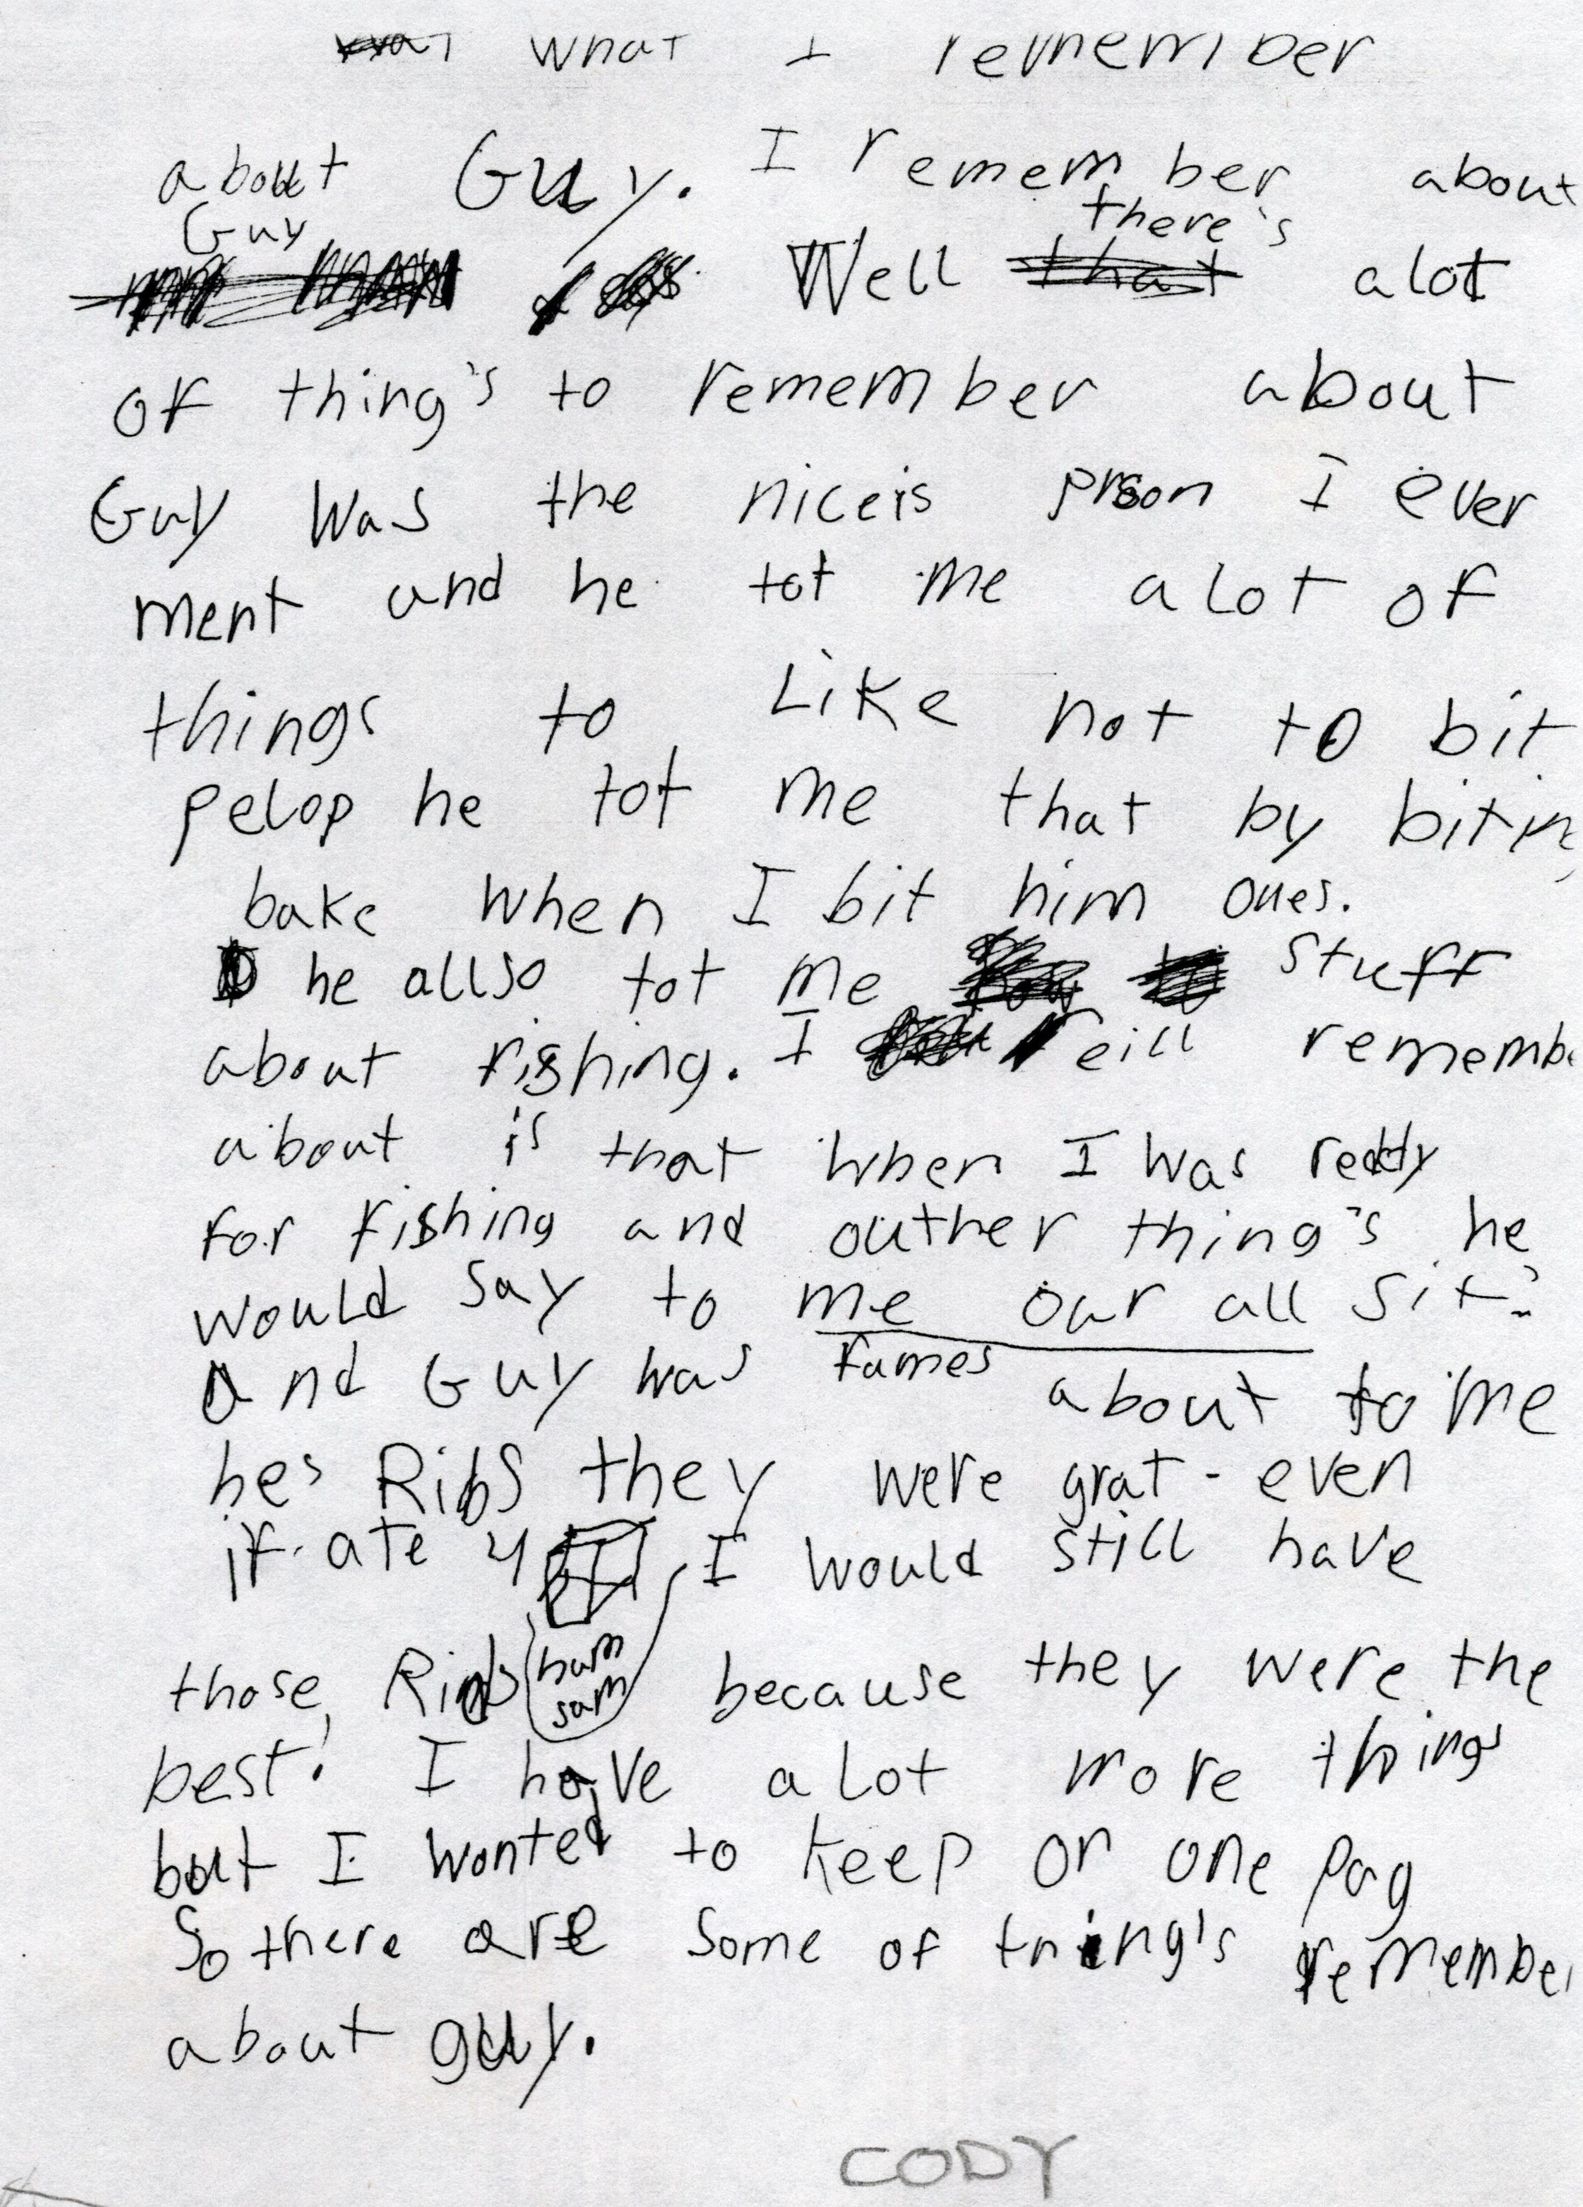 what I remember
about Guy. I remember about
Guy Well there's alot
of thing's to remember about
Guy was the niceis prson I ever
ment and he tot me alot of
things to Like not to bit
pelop he tot me that by bitin
bake when I bit him ones.
he allso tot me stuff
about fishing. I reill remembe
about is that when I was reddy
for fishing and outher thing's he
would say to me our all sit?
and Guy was fames about to me
hes Ribs they were grat - even
if ate 4 I would still have
ham
sam
those Ribs because they were the
best! I have alot more things
but I wonted to keep on one pag
So there are some of thing's remember
about guy.
CODY